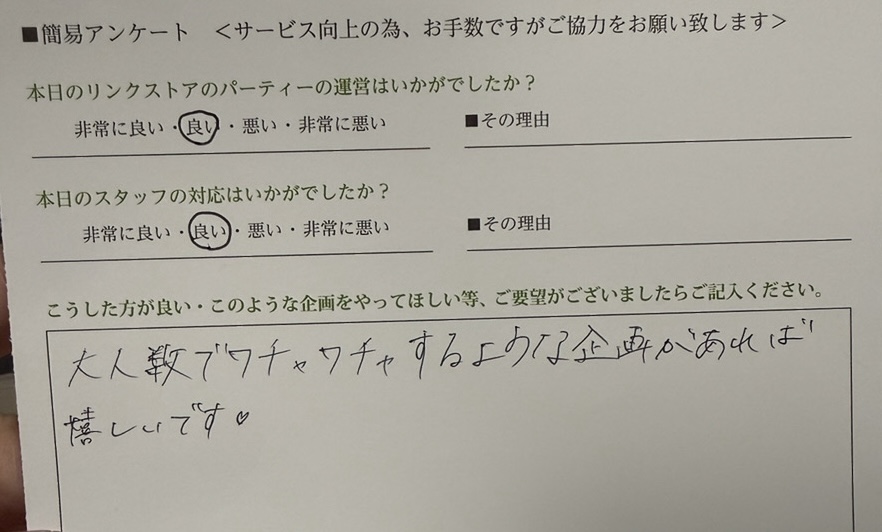 ■簡易アンケート ＜サービス向上の為、お手数ですがご協力をお願い致します＞
本日のリンクストアのパーティーの運営はいかがでしたか？
非常に良い・良い・悪い・非常に悪い ■その理由
本日のスタッフの対応はいかがでしたか？
非常に良い・良い・悪い・非常に悪い ■その理由
こうした方が良い・このような企画をやってほしい等、ご要望がございましたらご記入ください。
大人数でワチャワチャするような企画があれば
嬉しいです♡